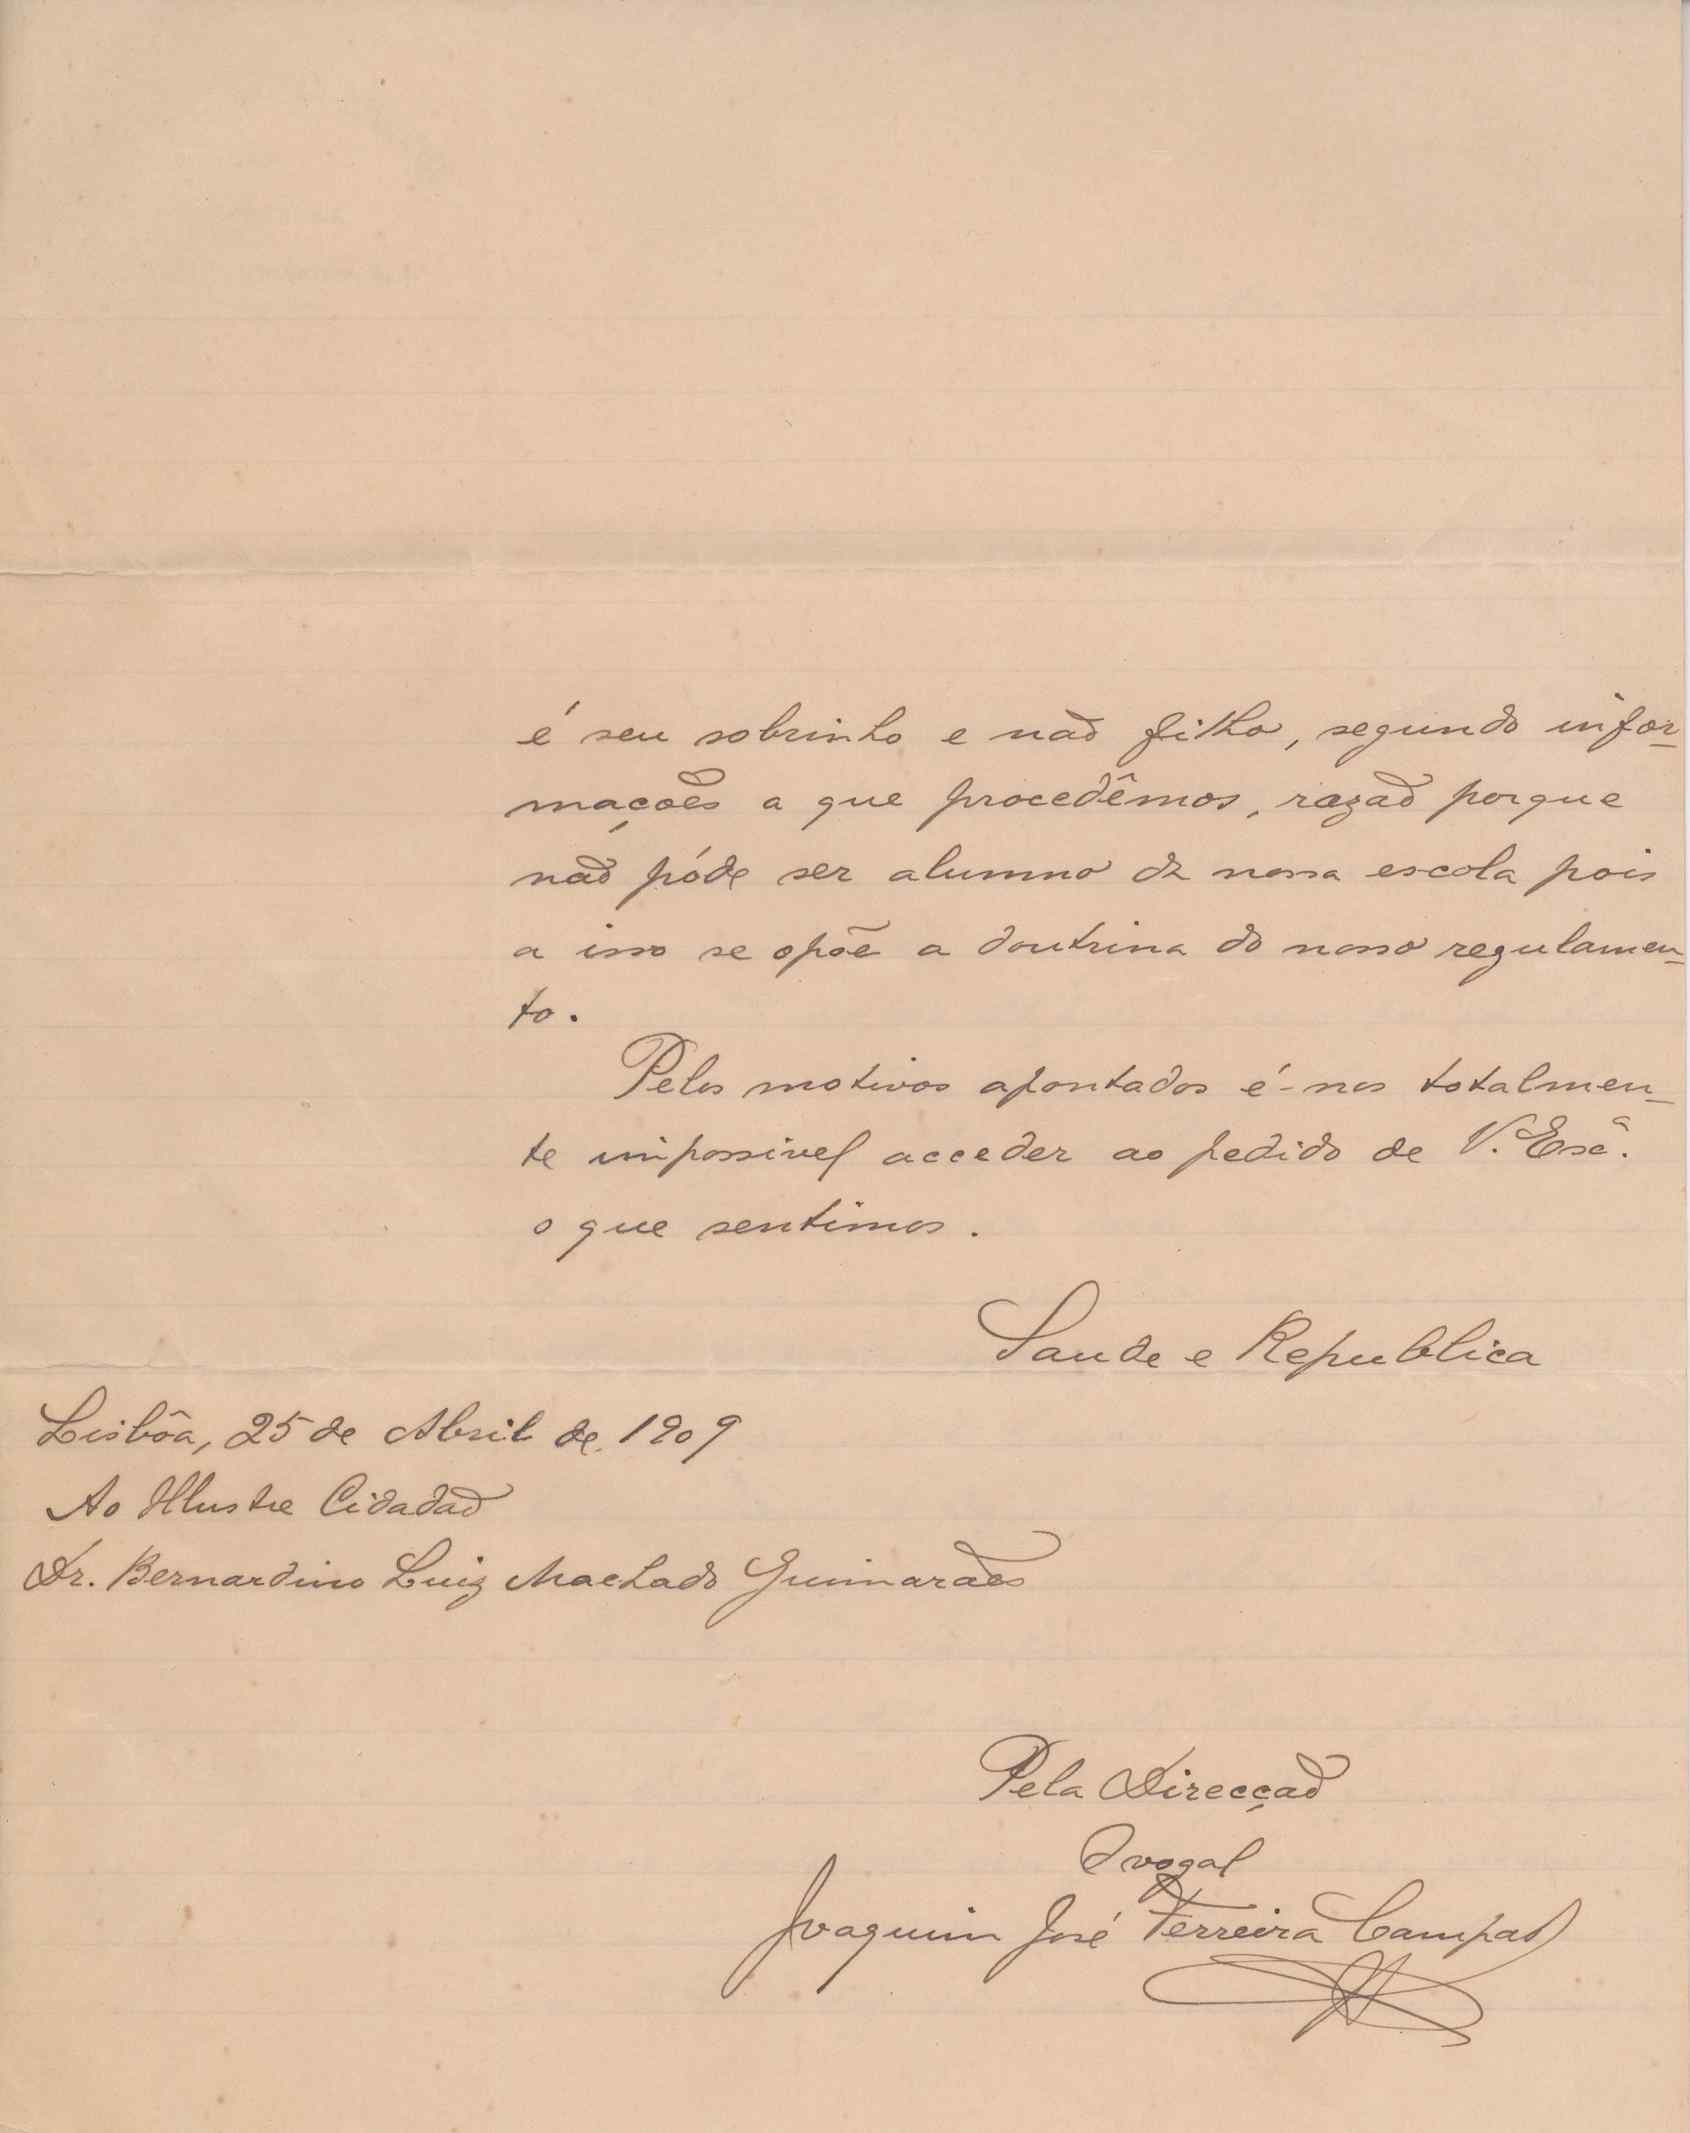 é seu sobrinho e não filho, segundo infor-
mações a que procedêmos, razão porque
não póde ser alumno da nossa escola pois
a isso se opõe a doutrina do nosso regulamen-
to.
Pelos motivos apontados é-nos totalmen-
te impossivel acceder ao pedido de V. Exc.ª
o que sentimos.
Saude e Republica
Lisbôa, 25 de Abril de 1909
Ao Illustre Cidadão
Dr. Bernardino Luiz Machado Guimarães
Pela Direcção
O vogal
Joaquim José Ferreira Campos